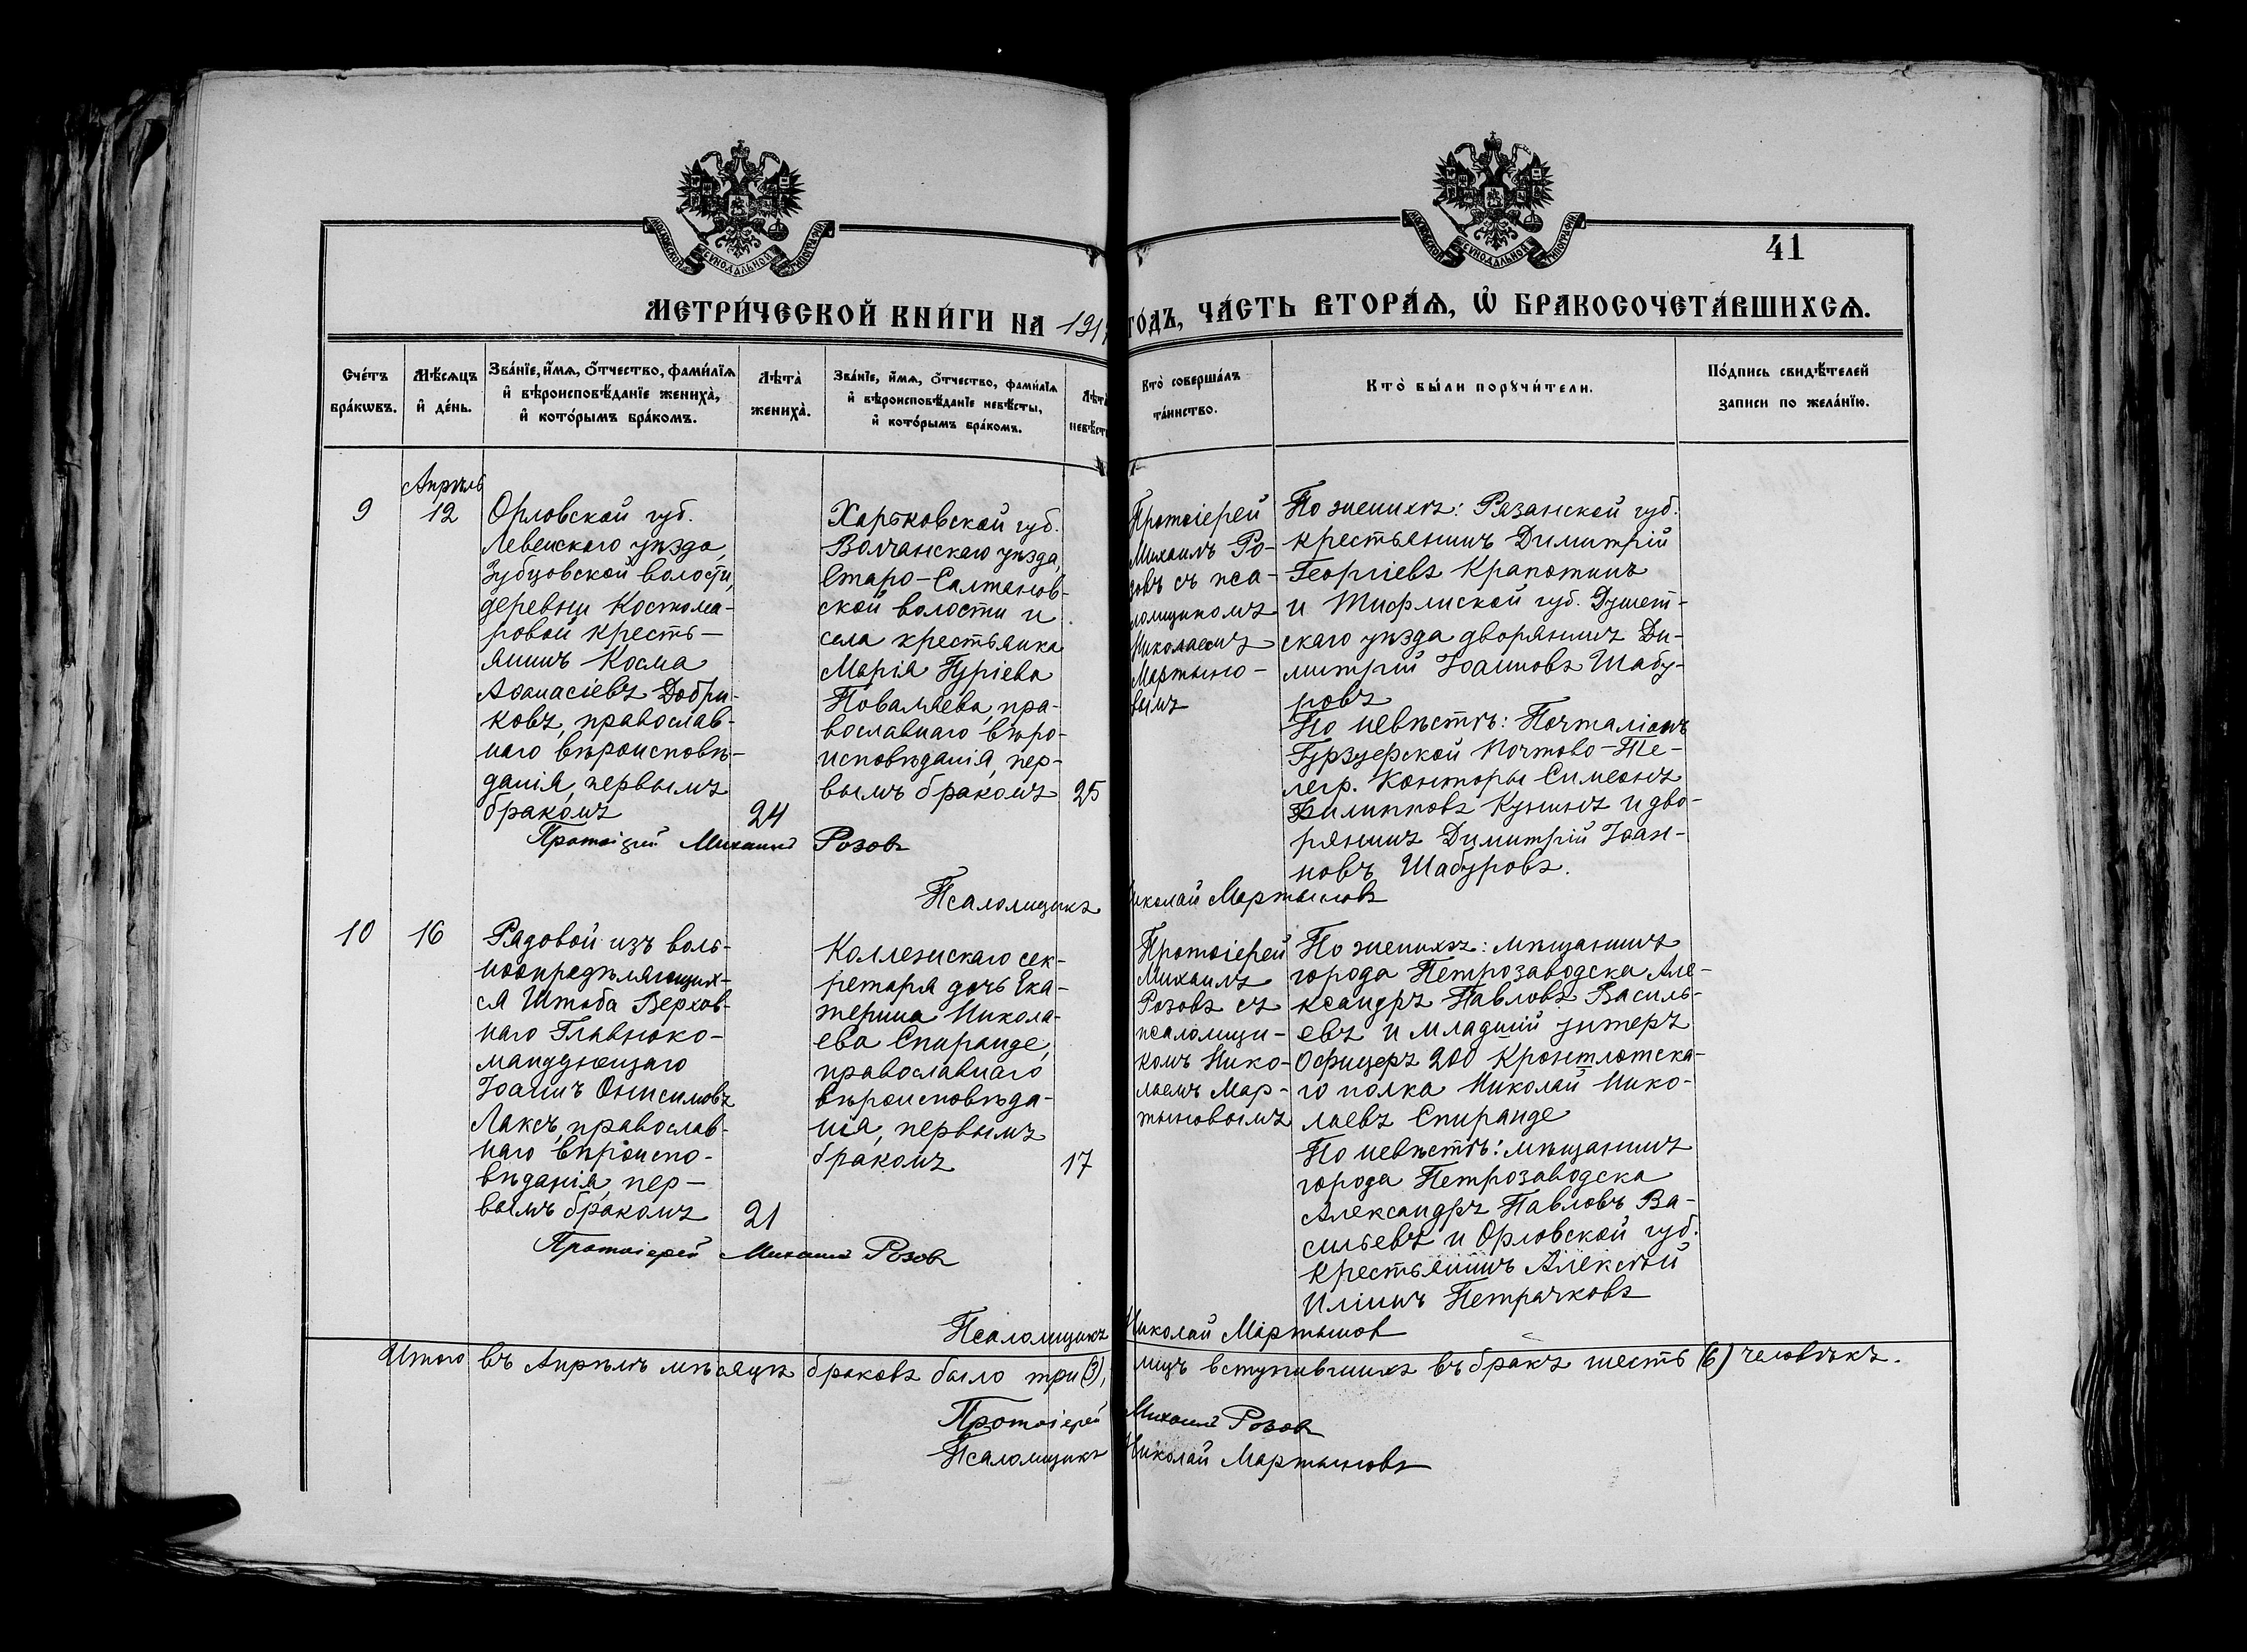 МОСКОВСКОЙ СѴНОДАЛЬНОЙ ТИПОГРАФІИ
МОСКОВСКОЙ СѴНОДАЛЬНОЙ ТИПОГРАФІИ
41
МЕТРИ́ЧЕСКОЙ КНИ́ГИ НА 191
ГО́ДЪ, ЧА́СТЬ ВТОРА́Ѧ, Ѡ҆ БРАКОСОЧЕТА́ВШИХСѦ.
Сче́тъ
бра́кωвъ.
Мѣ́сѧцъ
и҆ де́нь.
Зва́нїе, и҆́мѧ, о҆́тчество, фами́лїѧ
и҆ вѣроисповѣ́данїе жениха̀,
и҆ кото́рымъ бра́комъ.
Лѣта̀
жениха̀.
Зва́нїе, и҆́мѧ, о҆́тчество, фами́лїѧ
и҆ вѣроисповѣ́данїе невѣ́сты,
и҆ кото́рымъ бра́комъ.
Лѣта
невѣсты
Кто̀ соверша́лъ
та́инство.
Кто̀ бы́ли порꙋчи́тели.
По́дпись свидѣ́телей
записи по жела́нїю.
9
Апрѣль
12
Орловской губ.
Ливенскаго уѣзда,
Зубцовской волости,
деревни Костома-
ровой кресть-
янинъ Косма
Аѳанасіевъ Добри-
ковъ, православ-
наго вѣроисповѣ-
данія, первымъ
бракомъ
24
Харьковской губ.
Волчанскаго уѣзда,
Старо-Салтанов-
ской волости и
села крестьянка
Марія Гуріева
Поваляева, пра-
вославнаго вѣро-
исповѣданія, пер-
вымъ бракомъ
25
Протоіерей
Михаилъ Ро-
зовъ съ пса-
ломщикомъ
Николаемъ
Мартыно-
вымъ
По женихѣ: Рязанской губ.
крестьянинъ Димитрій
Георгіевъ Крапоткинъ
и Тифлиской губ. Душет-
скаго уѣзда дворянинъ Ди-
митрій Іоанновъ Шабу-
ровъ
По невѣстѣ: Почталіонъ
Гурзуфской Почтово-Те-
легр. Конторы Симеонъ
Филипповъ Кунинъ и дво-
рянинъ Димитрій Іоан-
новъ Шабуровъ.
Протоіерей Михаилъ Розовъ
Псаломщикъ Николай Мартыновъ
10
16
Рядовой изъ воль-
ноопредѣляющих-
ся Штаба Верхов-
наго Главноко-
мандующаго
Іоаннъ Онисимовъ
Лаксъ, православ-
наго вѣроиспо-
вѣданія, пер-
вымъ бракомъ
21
Коллежскаго сек-
ретаря дочь Ека-
терина Никола-
ева Спиранде,
православнаго
вѣроисповѣда-
нія, первымъ
бракомъ
17
Протоіерей
Михаилъ
Розовъ съ
псаломщи-
комъ Нико-
лаемъ Мар-
тыновымъ
По женихѣ: мѣщанинъ
города Петрозаводска Але-
ксандръ Павловъ Василь-
евъ и младшій унтеръ
Офицеръ 200 Кронтлотска-
го полка Николай Нико-
лаевъ Спиранде
По невѣстѣ: мѣщанинъ
города Петрозаводска
Александръ Павловъ Ва-
сильевъ и Орловской губ.
крестьянинъ Алексѣй
Иліинъ Петрачковъ
Протоіерей Михаилъ Розовъ
Псаломщикъ Николай Мартынов
Итого въ Апрѣлѣ мѣсяцѣ браковъ было три (3), лицъ вступившихъ въ бракъ шесть (6) человѣкъ.
Протоіерей Михаилъ Розовъ
Псаломщикъ Николай Мартыновъ